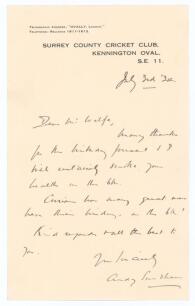 TELEGRAPHIC ADDRESS, "OVALLY, LONDON."
TELEPHONE: RELIANCE 1811-1812.
SURREY COUNTY CRICKET CLUB,
KENNINGTON OVAL,
S.E. 11.
July 3rd
Dear Mr Wolfe,
Many thanks
for the birthday present I
will certainly drink your
health on the 6th.
Curious how many great men
have their birthdays on the 6th!
Kind regards & all the best to
you.
Yrs sincerely
Andy Sandham